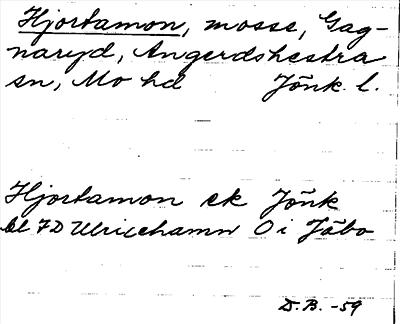 Hjortamon, mosse, Gag-
naryd, Ångerdshestra
sn, Mo hd Jönk. l.
Hjortamon ek Jönk
bl 7D Ulricehamn O i Jäbo
D.B. -59